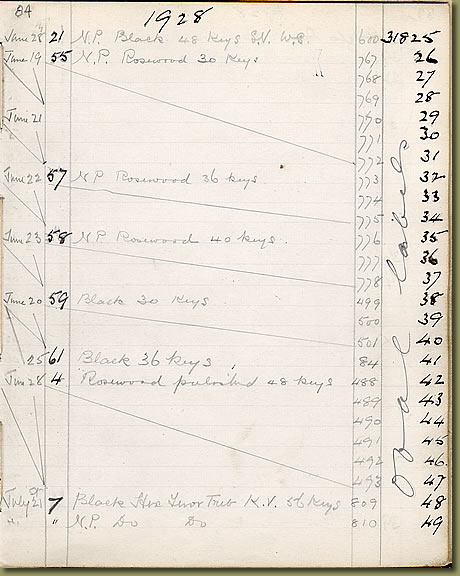 84
1928
June 28 21 N.P. Black 48 Keys S.V. W.S. 600 31825
June 19 55 N.P. Rosewood 30 Keys 767 26
768 27
769 28
June 21 770 29
771 30
772 31
June 22 57 N.P Rosewood 36 Keys 773 32
774 33
775 34
June 23 58 N.P Rosewood 40 Keys. 776 35
777 36
778 37
June 20 59 Black 30 Keys 499 38
500 39
501 40
25 61 Black 36 Keys 84 41
June 28 4 Rosewood polished 48 Keys 488 42
489 43
490 44
491 45
492 46
493 47
July 21 7 Black K.V. 56 Keys 809 48
" N.P. Do Do 810 49
Oval Labels